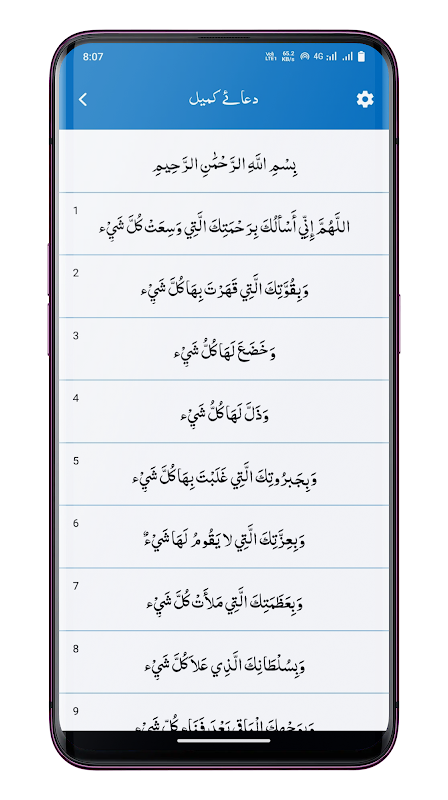 8:07 Vo) LTE1 65.2 KB/s 4G
دعائے کمیل
بِسْمِ اللَّهِ الرَّحْمَٰنِ الرَّحِيمِ
1
اللَّهُمَّ إِنِّي أَسْأَلُكَ بِرَحْمَتِكَ الَّتِي وَسِعَتْ كُلَّ شَيْءٍ
2
وَبِقُوَّتِكَ الَّتِي قَهَرْتَ بِهَا كُلَّ شَيْءٍ
3
وَخَضَعَ لَهَا كُلُّ شَيْءٍ
4
وَذَلَّ لَهَا كُلُّ شَيْءٍ
5
وَبِجَبَرُوتِكَ الَّتِي غَلَبْتَ بِهَا كُلَّ شَيْءٍ
6
وَبِعِزَّتِكَ الَّتِي لا يَقُومُ لَهَا شَيْءٌ
7
وَبِعَظَمَتِكَ الَّتِي مَلأَتْ كُلَّ شَيْءٍ
8
وَبِسُلْطَانِكَ الَّذِي عَلاَ كُلَّ شَيْءٍ
9
وَبِوَجْهِكَ الْبَاقِي بَعْدَ فَنَاءِ كُلِّ شَيْءٍ